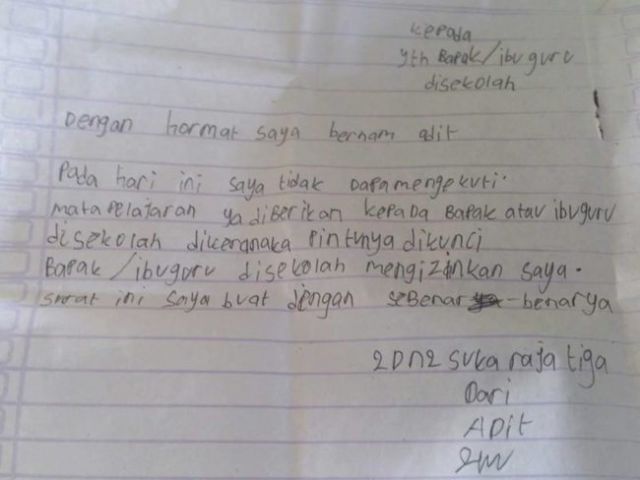 kepada
yth Bapak/ibu guru
disekolah
Dengan hormat saya bernam adit
Pada hari ini saya tidak Dapamengekuti.
mata Pelajaran ya diBerikan kepada Bapak atau ibuguru
disekolah dikeranaka Pintunya dikunci
Bapak/ibuguru disekolah mengizinkan saya.
surat ini saya buat dengan seBenar - benarya
2Dn2 suka raja tiga
Dari
ADit